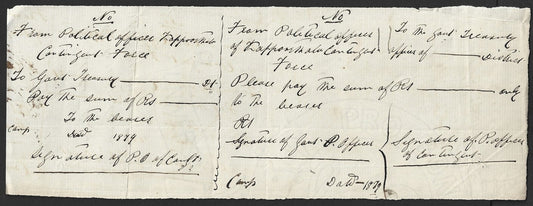 No
From Political officer
Contingent Force
To Govt Treasury Dt.
Pay the sum of Rs
To the bearer
Camp Dated 1879
Signature of P. O of Contgt
No
From Political officer
of Contingent
Force
Please pay the sum of Rs only
to the bearer
Rs
Signature of Govt P. Officer
Camp Dated 1879
To the Govt Treasury
officer of District
Signature of P. officer
of Contingent